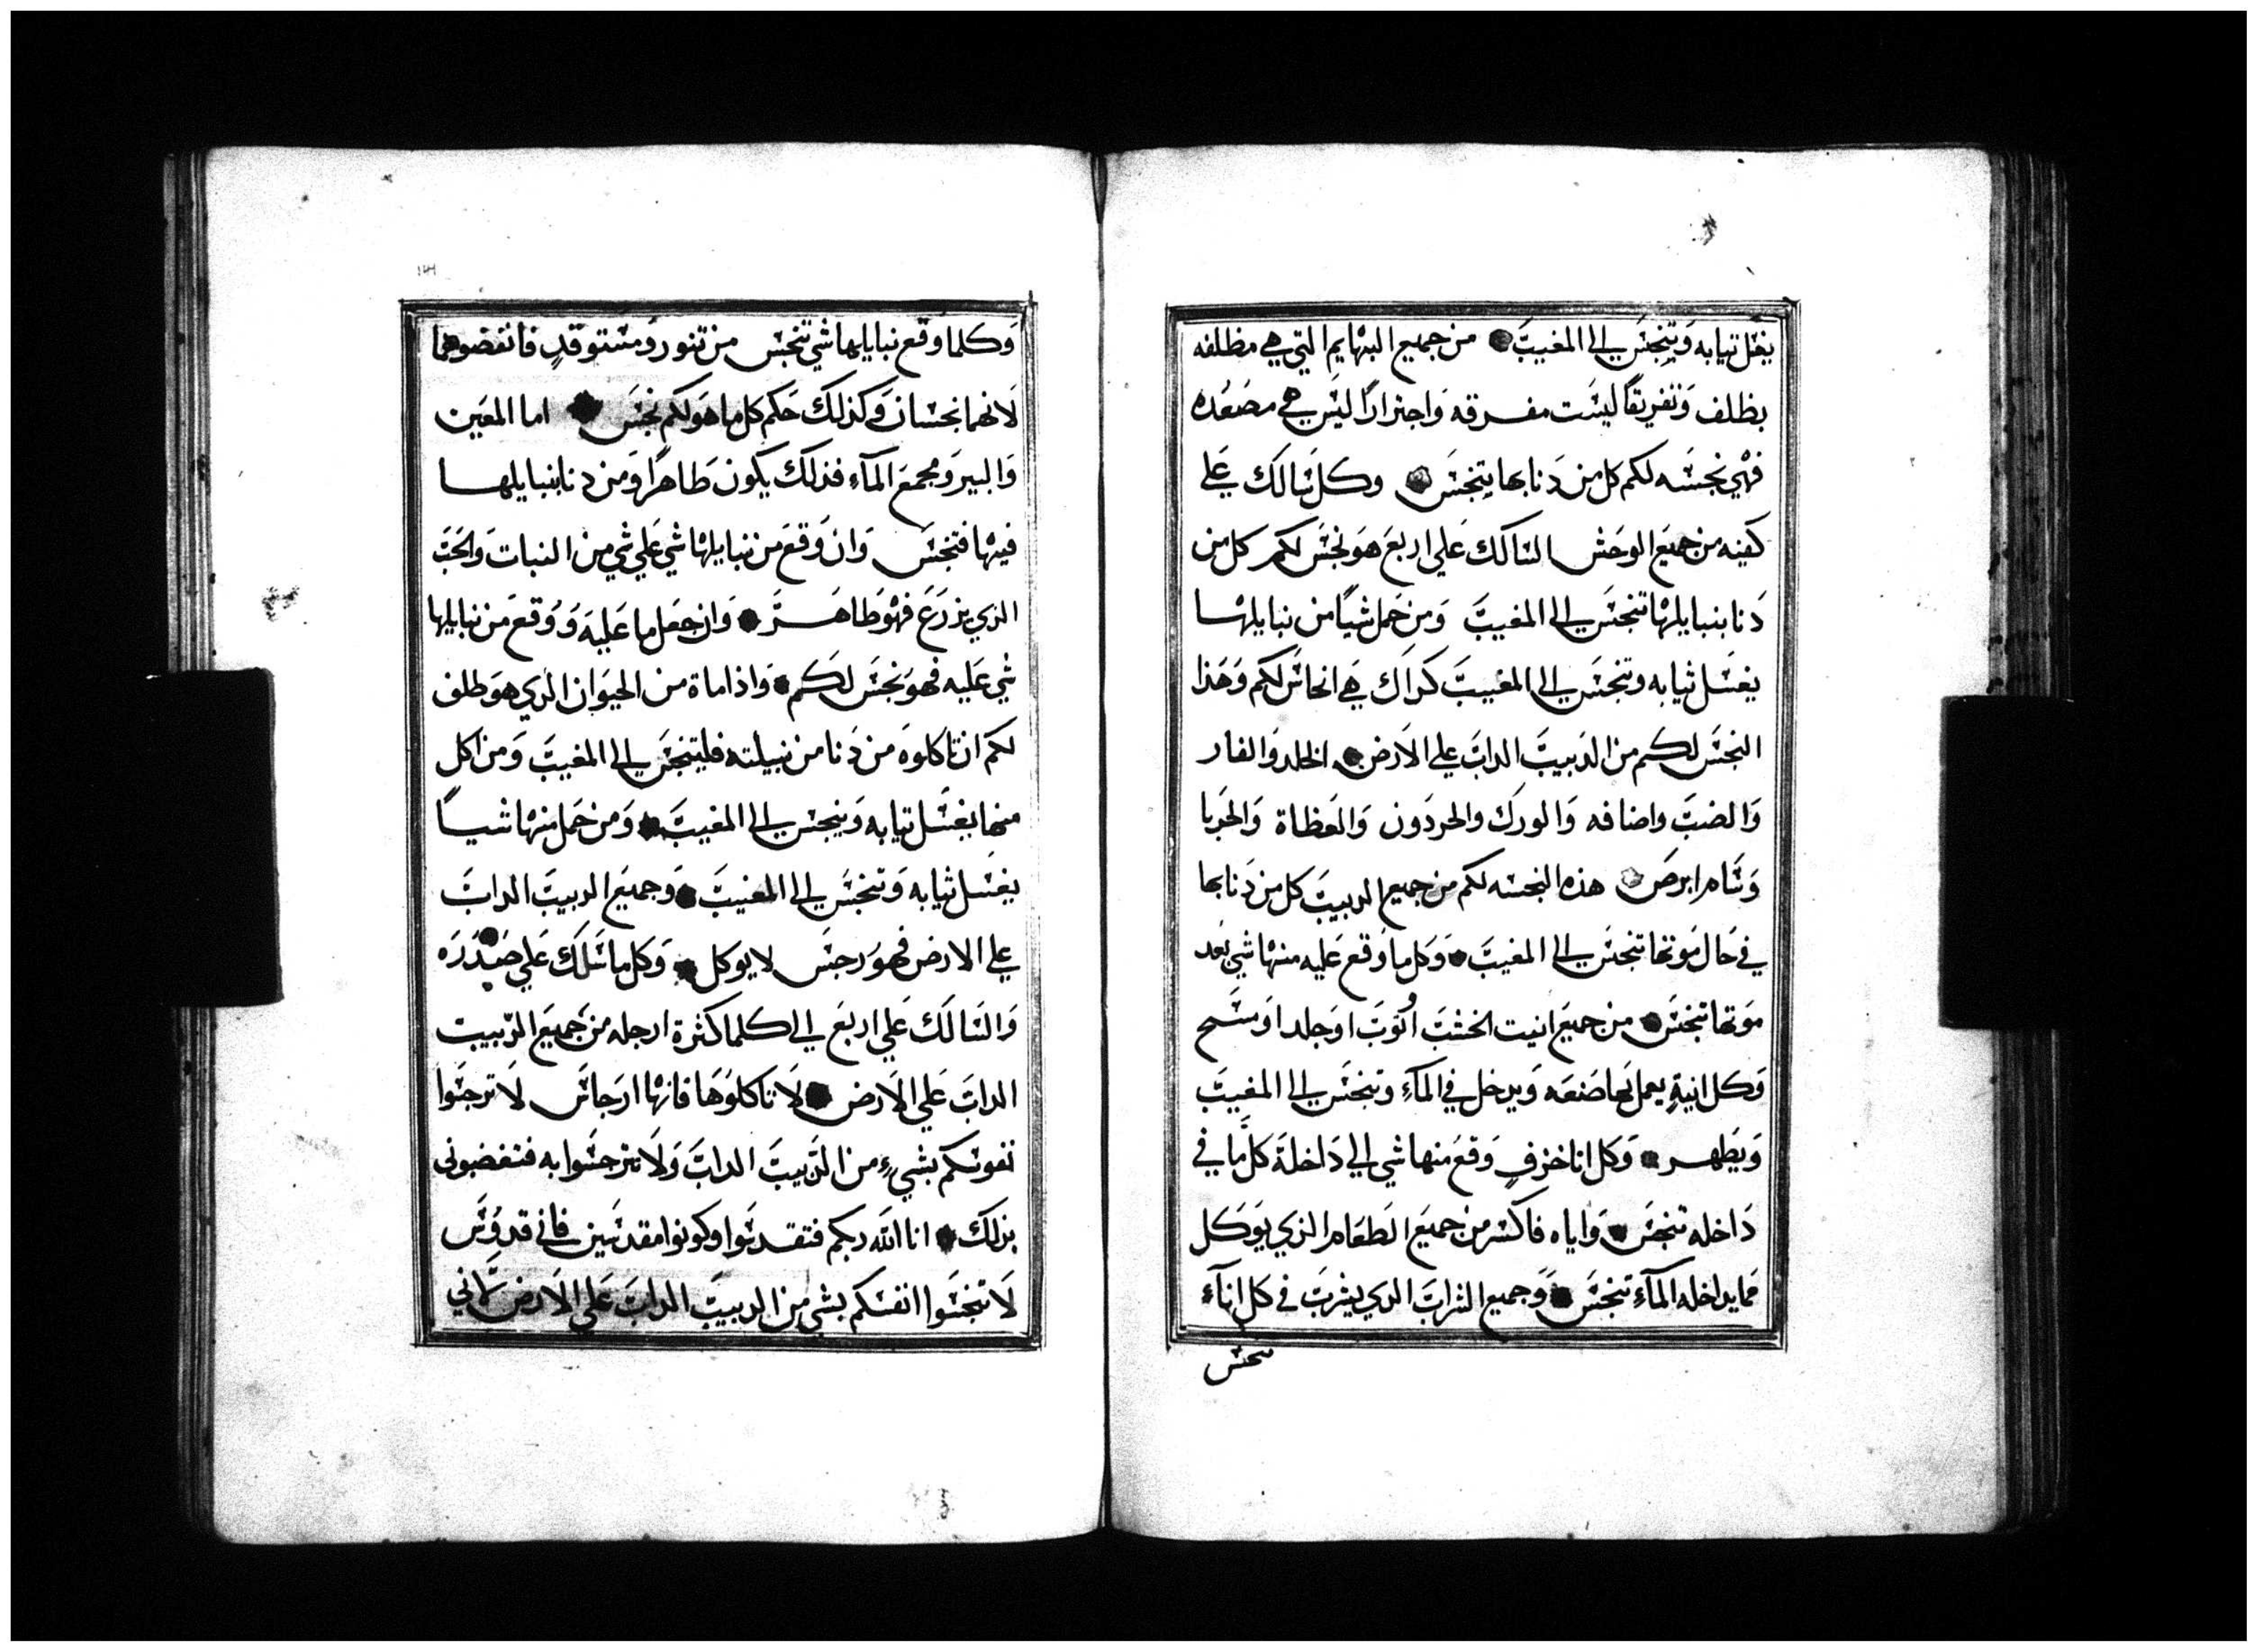 يغسل تيابه وَيتنجسَ الى المغيبَ من جميع البهايم التي هي مظلفه
بظلف وَتفريقًا ليسَت مفرقه وَاجترارًا ليسَ هي مصَعُده
فهي نجسَه لكم كل من دَنا بها يتنجسَ وكل سَالك عَلي
كفيه من جميعَ الوحَش السَالك عَلي اربعَ هوَ نجسَ لكم كل من
دَنا بنبايلها تنجسَ الى المغيبَ وَمن حَمل شيًا من نبايلها
يغسَل ثيابه وتنجسَ الى المغيبَ كداَك هَي انجاسَ لكم وَهَذا
النجسَ لكم من الدَبيبَ الدابَ علي الاَرض الخلد وَالفار
وَالضبَ واضافه وَالورَك والحردَون وَالعَظاة وَالحَربا
وَسَام ابرصَ هذه النجسه لكم من جميع الدبيبَ كل من دَنا بها
في حَال مَوتها تنجسَ الى المغيبَ وَكل ما وَقع عَليه منها شي بَعد
مَوتها تنجسَ من جميعَ انيت الخشبَ اوُ توَبَ اوَ جلد اوَ مسَح
وَكل انيةٍ يعمل بَها صَنعَه وَيدخل في المآءِ وتنجسَ الى المغيبَ
وَيَطهر وَكل انا خزفٍ وَقعَ منها شي الي دَاخلهَ كل مَا في
دَاخله تنجسَ وَاياه فاكسَر من جميعَ الطعَام الذي يوَكل
مما يداخله المآءَ تنجسَ وَجميع الشرابَ الدي يشربَ في كل انآءَ
نجس
وَكلما وَقع نبايلها شي تنجسَ من تنور وَمسَتوقدٍ فانقضوهما
لاَنهما نجسَان وَكذلكَ حَكم كل ما هوَ لكم نجسَ اما المعَين
وَالبير وَمجمعَ المآءِ فذلكَ يكون طَاهرًا وَمن دَنا بنبايلها
فيها فتنجسَ وَان وَقعَ من نبايلها شي عَلي شي من النباتَ وَالحبَ
الذي يزرَعَ فهوَ طَاهرَ وَان جعَل ما عَليهَ وَوَقعَ من نبايلها
شي عَليه فهوَ نجسَ لكَم وَاذا ماة من الحيوَان الدي هوَ طلف
لكم ان تاكلوهَ من دَنا من نبيلته فليتنجسَ الى المغيبَ وَمن اكل
منها يغسَل تيابه وَينجسَ الى المغيبَ وَمن حَمل منها شيًا
يغسَل ثيابه وَتنجسَ الى المغيبَ وَجميعَ الدبيبَ الدابَ
علي الارض فهوَ رجسَ لا يوكل وَكل ما سَلكَ عَلي صَدرَه
وَالسَالكَ عَلي اربَع الي كلما كثرة ارجله من جَميعَ الدّبيبت
الدابَ عَلي الاَرض لاَ تاكلوُهَا فانها ارَجاسَ لاَ ترجسَوا
نفوسَكم بشيءٍ من الدَبيبَ الدابَ وَلاَ تترجسَوا به فتغضبوني
بذلكَ انا اللَه ربكم فتقدسَوا وكونوا مقدسَين فاني قدوسَ
لاَ تنجسَوا انفسَكم بشي من الدبيبَ الدابَ عَلي الاَرض لاَني